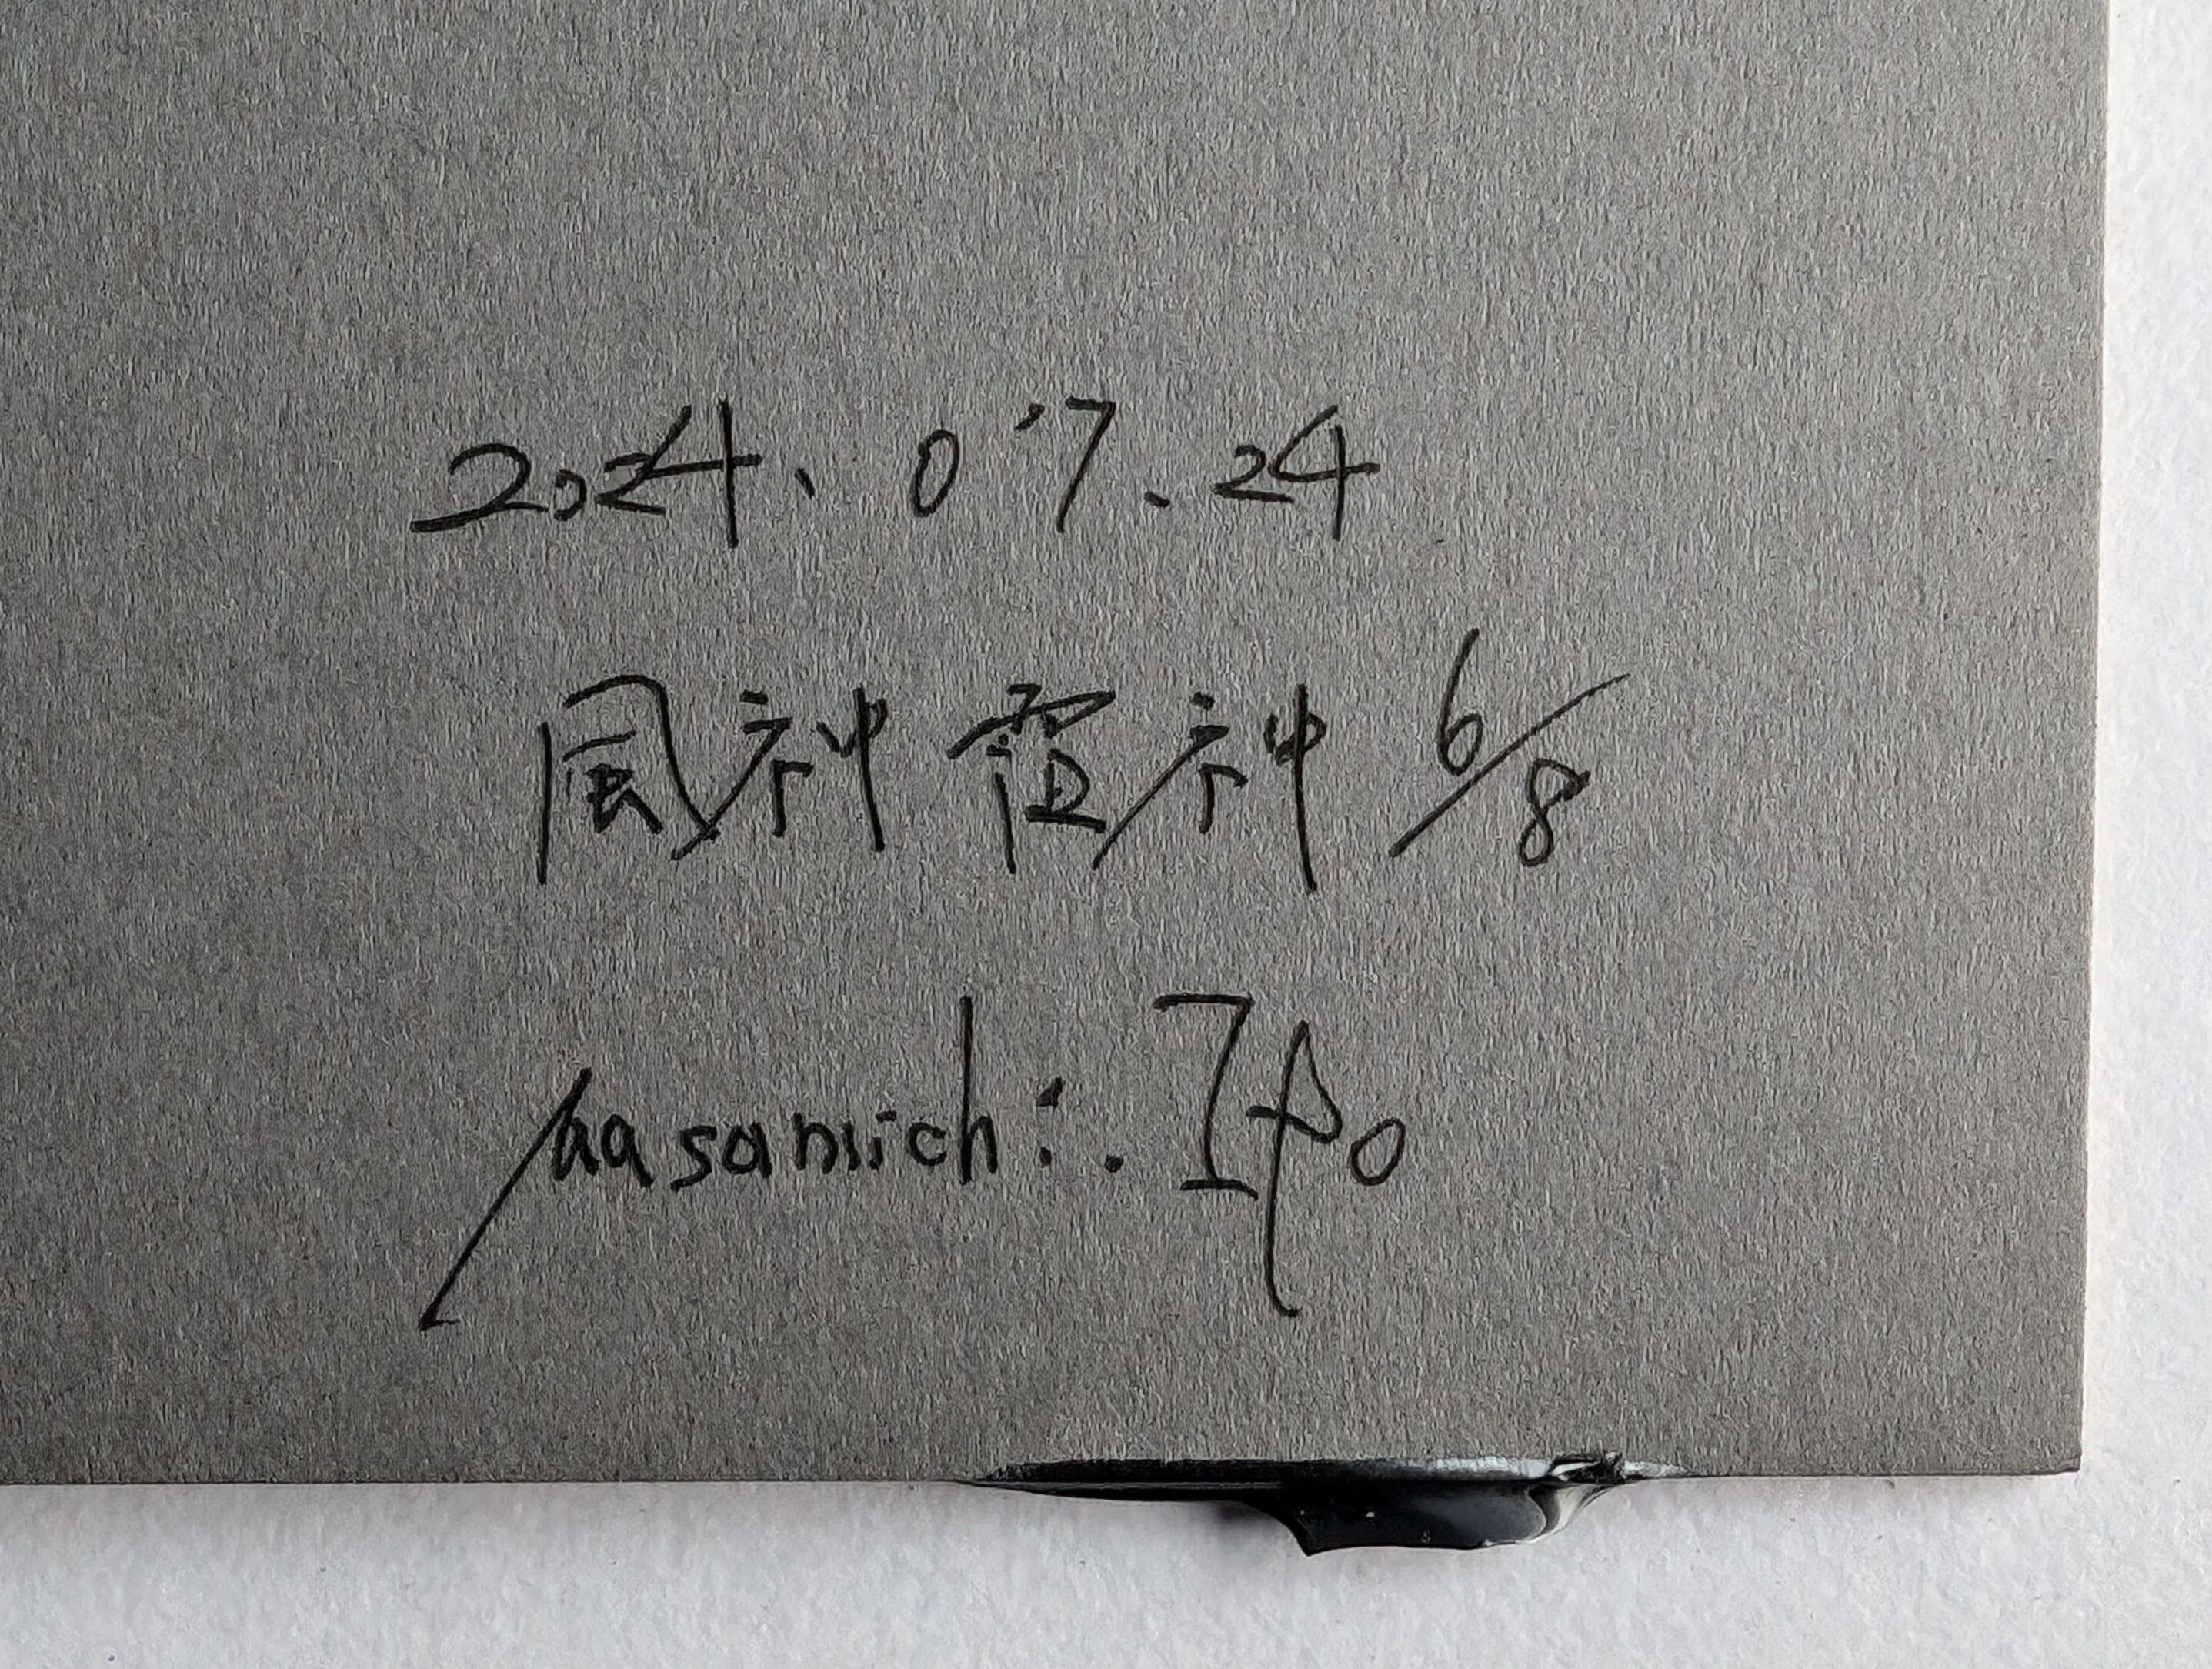 2024.07.24
風神雷神 6/8
Masamichi. Ipo